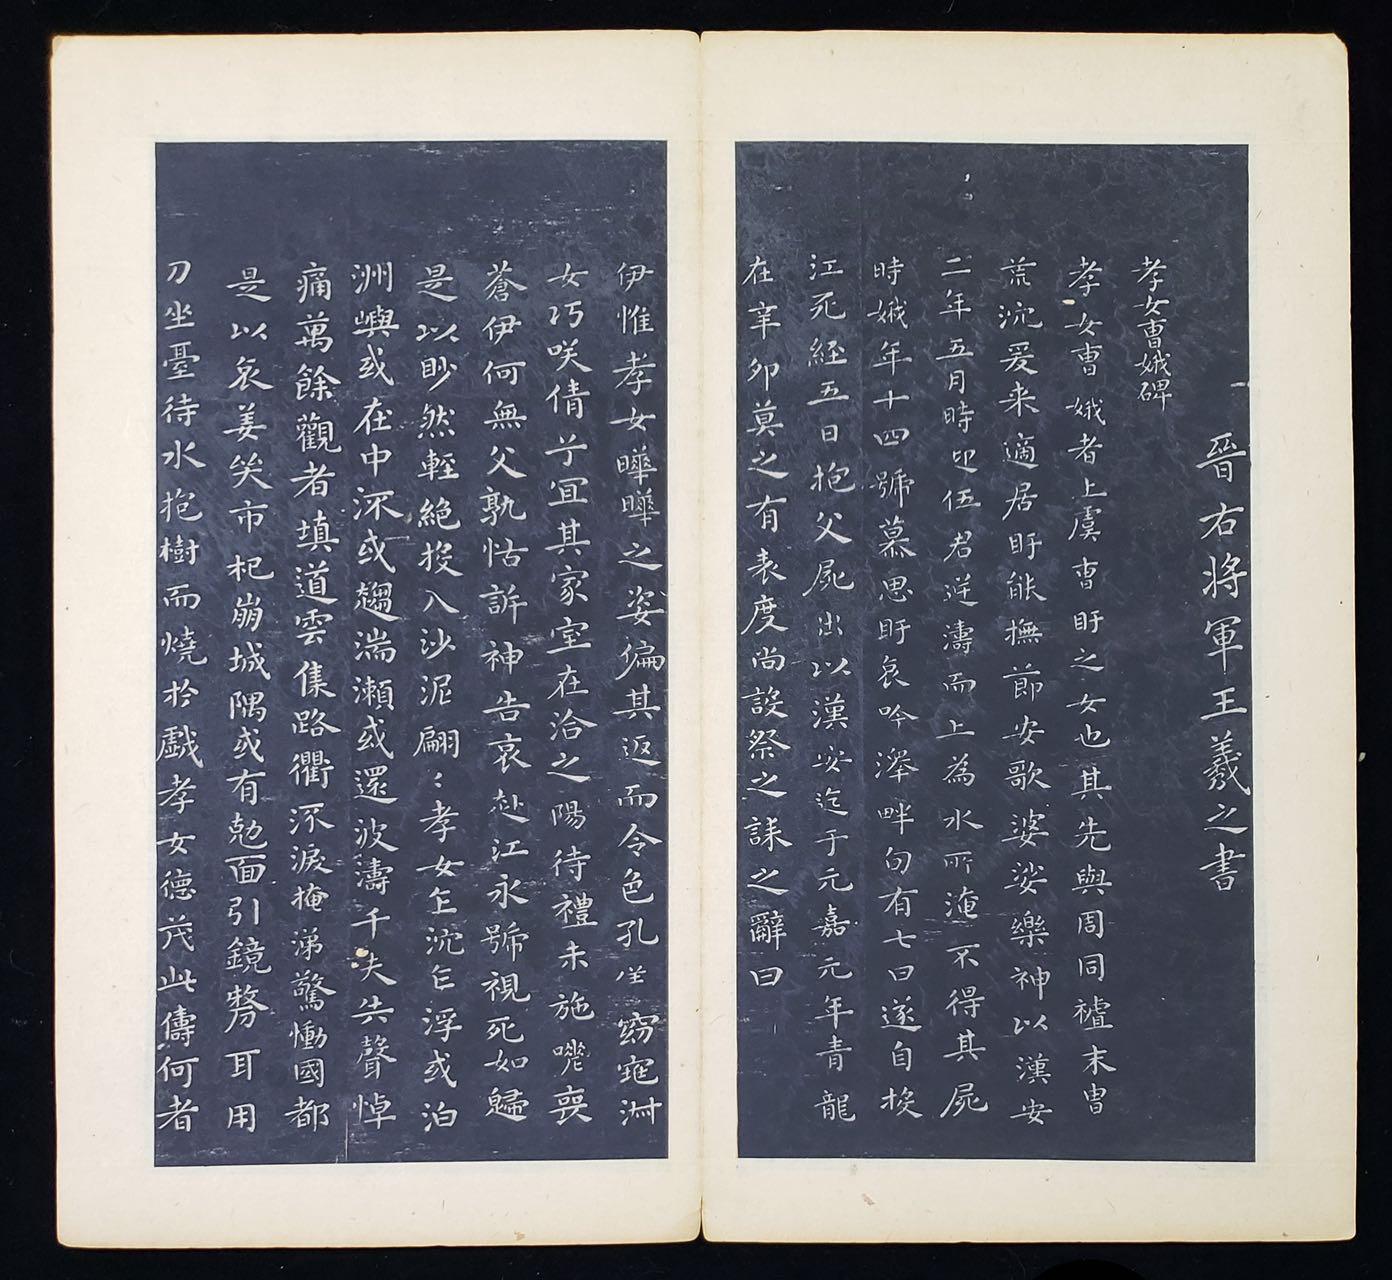 晉右將軍王羲之書
孝女曹娥碑
孝女曹娥者上虞曹盱之女也其先與周同祖末冑
荒沉爰来適居盱能撫節安歌婆娑樂神以漢安
二年五月時迎伍君逆濤而上為水所淹不得其屍
時娥年十四號慕思盱哀吟澤畔旬有七日遂自投
江死經五日抱父屍出以漢安迄于元嘉元年青龍
在辛卯莫之有表度尚設祭之誄之辭曰
伊惟孝女曄曄之姿偏其返而令色孔儀窈窕淑
女巧咲倩兮宜其家室在洽之陽待禮未施嗟喪
蒼伊何無父孰怙訴神告哀赴江永號視死如歸
是以眇然輕絕投入沙泥翩〻孝女乍沉乍浮或泊
洲嶼或在中流或趨湍瀨或還波濤千夫失聲悼
痛萬餘觀者填道雲集路衢流淚掩涕驚慟國都
是以哀姜哭市杞崩城隅或有尅面引鏡剺耳用
刀坐臺待水抱樹而燒於戲孝女德茂此儔何者